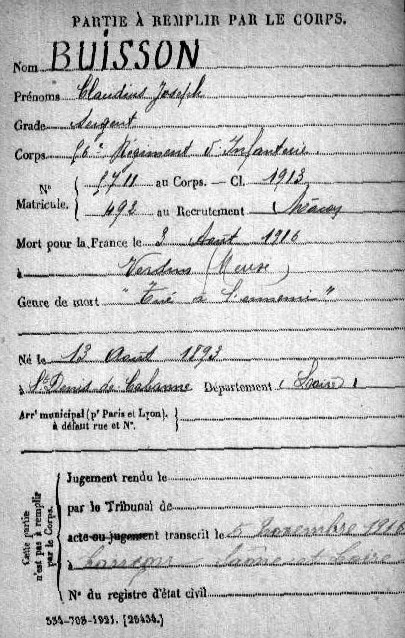 PARTIE À REMPLIR PAR LE CORPS.
Nom BUISSON
Prénoms Claudius Joseph
Grade Sergent
Corps 56e Régiment d'Infanterie
N° Matricule. 5711 au Corps. — Cl. 1913
492 au Recrutement Mâcon
Mort pour la France le 3 Août 1916
à Verdun (Meuse)
Genre de mort "Tué à l'ennemi"
Né le 13 Août 1893
à St Denis de Cabanne Département (Loire)
Arrt municipal (pr Paris et Lyon),
à défaut rue et N°.
Cette partie n'est pas à remplir par le Corps.
Jugement rendu le
par le Tribunal de
acte ou jugement transcrit le 5 novembre 1916
à Saône et Loire
N° du registre d'état civil
534-708-1921. [26434.]